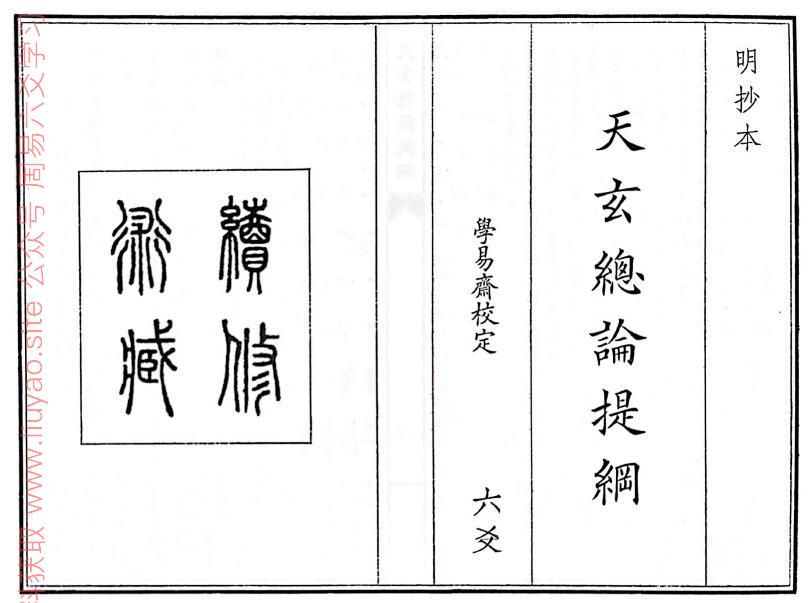 明抄本
天玄總論提綱
學易齋校定
六爻
續修
術藏
获取 www.liuyao.site 公众号 周易六爻学